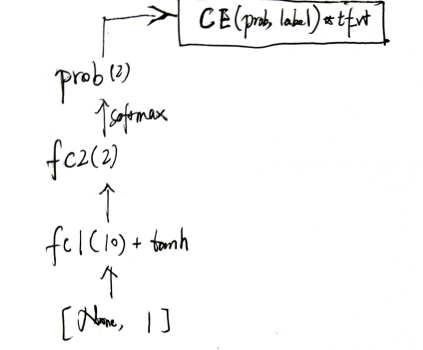 CE(prob, label) * tfvt
prob(2)
softmax
fc2(2)
fc1(10) + tanh
[None, 1]